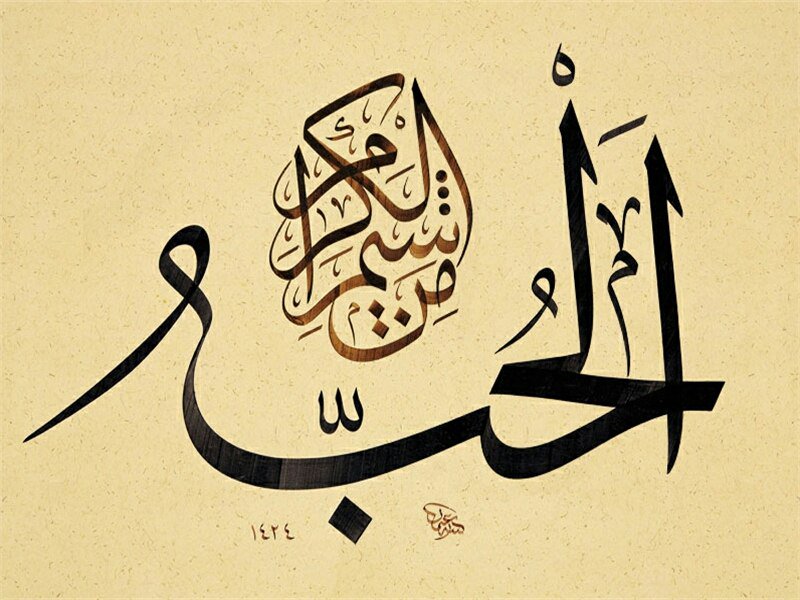 الحُبّ
مِن شِيَم الكِرام
١٤٢٤